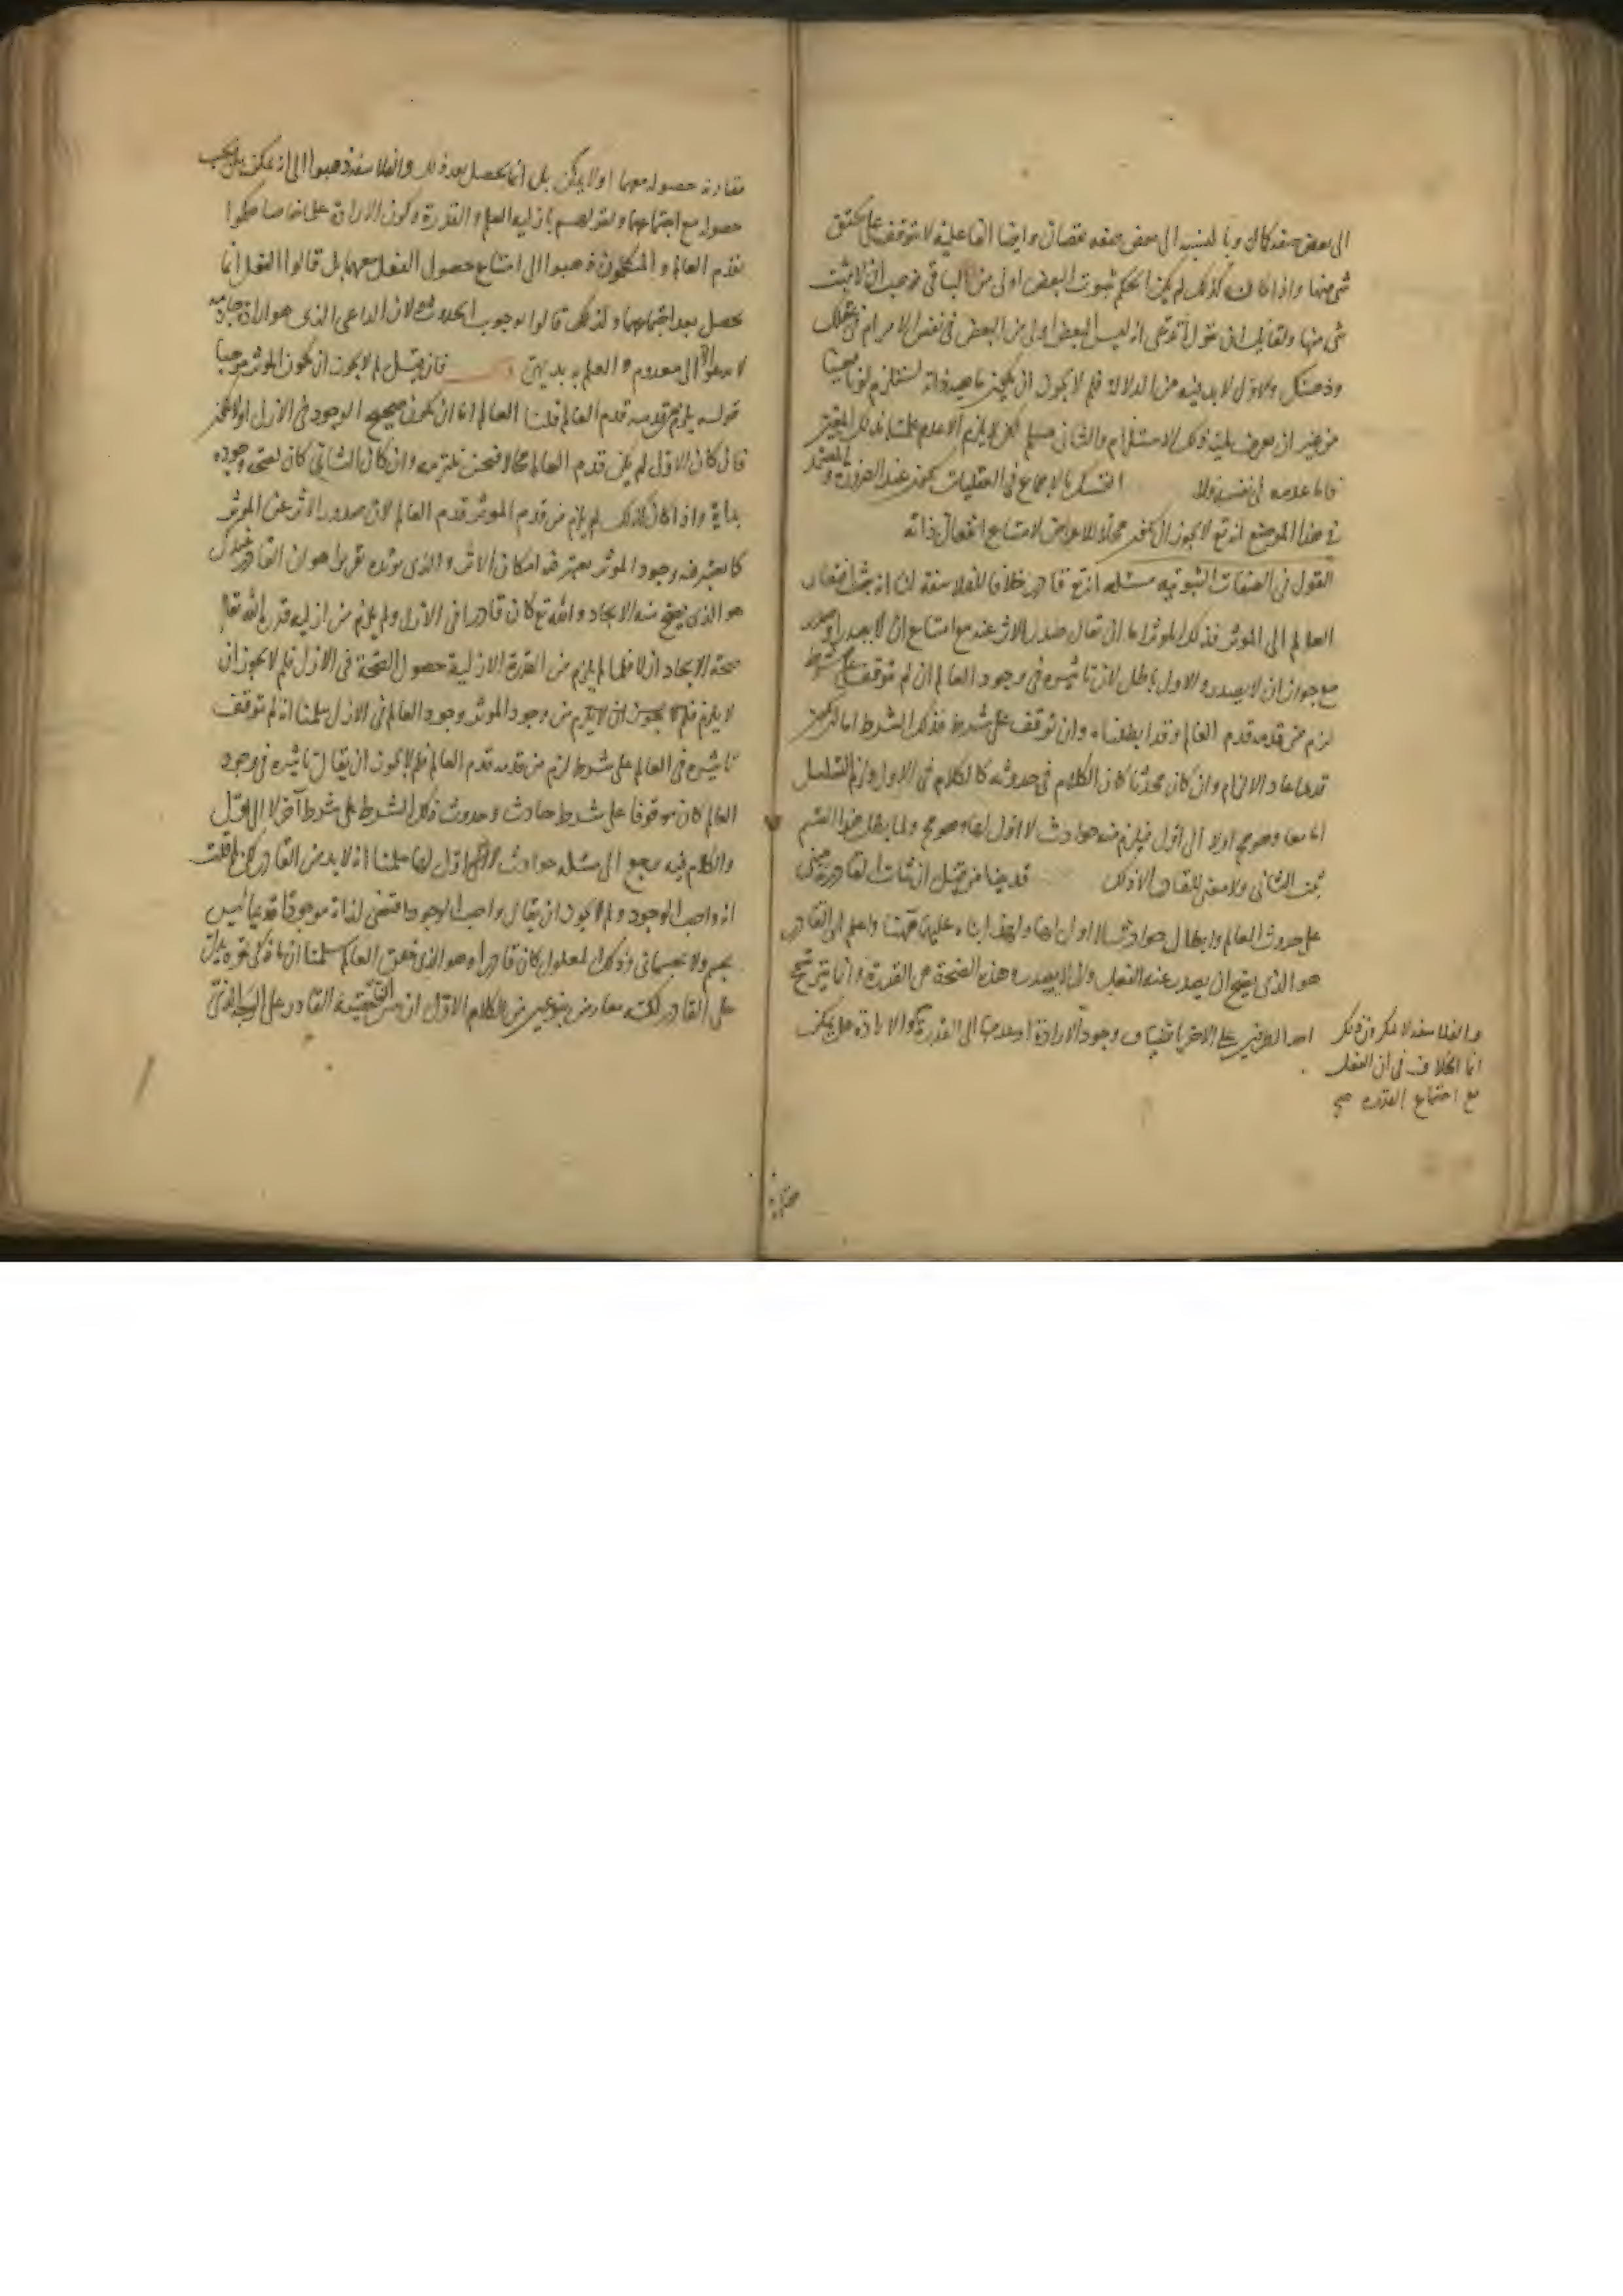 الى بعض صفة كمال وبالنسبة الى بعض صفة نقصان وايضا الفاعلية لا تتوقف على تحقق
شى منها واذا كان كذلك لم يكن الحكم بثبوت البعض اولى من الباقى فوجب ان لا يثبت
شى منها ولقايل ان يقول تدعى انه ليس البعض اولى من البعض فى نفس الامر ام فى عقلك
وذهنك والاول لابد فيه من الدلالة فلم لا يجوز ان يكون ماهية ذاته تستلزم لونا معينا
من غير ان نعرف لمية ذلك الاستلزام والثانى مسلم لكن لا يلزم الا عدم علمنا بذلك المعين
فاما عدمه فى نفسه فلا التمسك بالاجماع فى العقليات عند الضرورة والمعتمد
فى هذا الموضع انه تع لا يجوز ان يكون محلا للاعراض لامتناع انفعال ذاته
القول فى الصفات الثبوتية مسئلة انه تع قادر خلافا للفلاسفة لنا انه ثبت افتقار
العالم الى الموثر فذلك الموثر اما ان يقال صدور الاثر عنه مع امتناع ان لا يصدر او صدر
مع جواز ان لا يصدر والاول باطل لان تاثيره فى وجود العالم ان لم يتوقف على شرط
لزم من قدمه قدم العالم وقد ابطلناه وان توقف على شرط فذلك الشرط اما ان يكون
قديما عاد الالزام وان كان محدثا كان الكلام فى حدوثه كالكلام فى الاول ولزم التسلسل
اما معا وهو مح اولا الى اول فيلزم منه حوادث لا اول لها وهو مح ولما بطل هذا القسم
ثبت الثانى ولا معنى للقادر الا ذلك قد بينا من قبل ان اثبات القادر مبنى
على حدوث العالم وابطال حوادث لا اول لها ولهذا بناه عليها ههنا واعلم ان القادر
هو الذى يصح ان يصدر عنه الفعل وان لا يصدر وهذه الصحة هى القدرة وانما يترجح
احد الطرفين على الاخر بانضياف وجود الارادة او عدمها الى القدرة والارادة هل يمكن
والفلاسفة لا ينكرون ذلك
انما الخلاف فى ان الفعل
مع اجتماع القدرة صح
مقارنة حصوله معهما او لا يمكن بل انما يحصل بعد ذلك والفلاسفة ذهبوا الى انه يمكن بل يجب
حصوله مع اجتماعهما ولقولهم بازلية العلم والقدرة وكون الارادة علما خاصا حكموا
بقدم العالم والمتكلمون ذهبوا الى امتناع حصول الفعل معهما بل قالوا الفعل انما
يحصل بعد اجتماعهما ولذلك قالوا بوجوب الحدوث لان الداعى الذى هو ارادة جازمة
لا يدعو الا الى معدوم والعلم به بديهى فان قيل لم لا يجوز ان يكون الموثر موجبا
قوله يلزم من قدمه قدم العالم قلنا العالم اما ان يكون صحيح الوجود فى الازل او لا يكون
فان كان الاول لم يكن قدم العالم محالا فنحن نلتزمه وان كان الثانى كان لصحة وجوده
بداية واذا كان كذلك لم يلزم من قدم الموثر قدم العالم لان صدور الاثر عن الموثر
كما يعتبر فيه وجود الموثر يعتبر فيه امكان الاثر والذى يؤيده تقريرا هو ان القادر عندكم
هو الذى يصح منه الايجاد والله تع كان قادرا فى الازل ولم يلزم من ازلية قدرة الله تعالى
صحة الايجاد ازلا فلما لم يلزم من القدرة الازلية حصول الصحة فى الازل فلم لا يجوز ان
لا يلزم من وجود الموثر وجود العالم فى الازل سلمنا انه لم يتوقف
تاثيره فى العالم على شرط لزم من قدمه قدم العالم فلم لا يجوز ان يقال تاثيره فى وجود
العالم كان موقوفا على شرط حادث وحدوث ذلك الشرط على شرط آخر لا الى اول
والكلام فيه يرجع الى مسئلة حوادث لا اول لها سلمنا انه لابد من القادر لكن لم قلت
انه واجب الوجود ولم لا يجوز ان يقال واجب الوجود اقتضى لذاته موجودا قديما ليس
بجسم ولا جسمانى وذلك المعلول كان قادرا وهو الذى خلق العالم سلمنا ان ما ذكرتموه يدل
على القادر لكنه معارض بنوعين من الكلام الاول ان حقيقة القادر على الوجه الذى